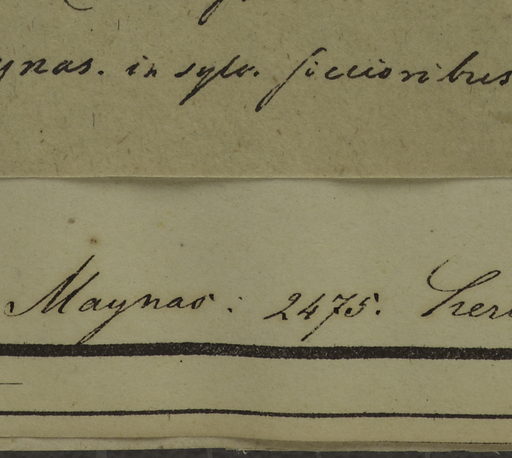 ynas. in sylv. siccioribus
Maynas: 2475. her